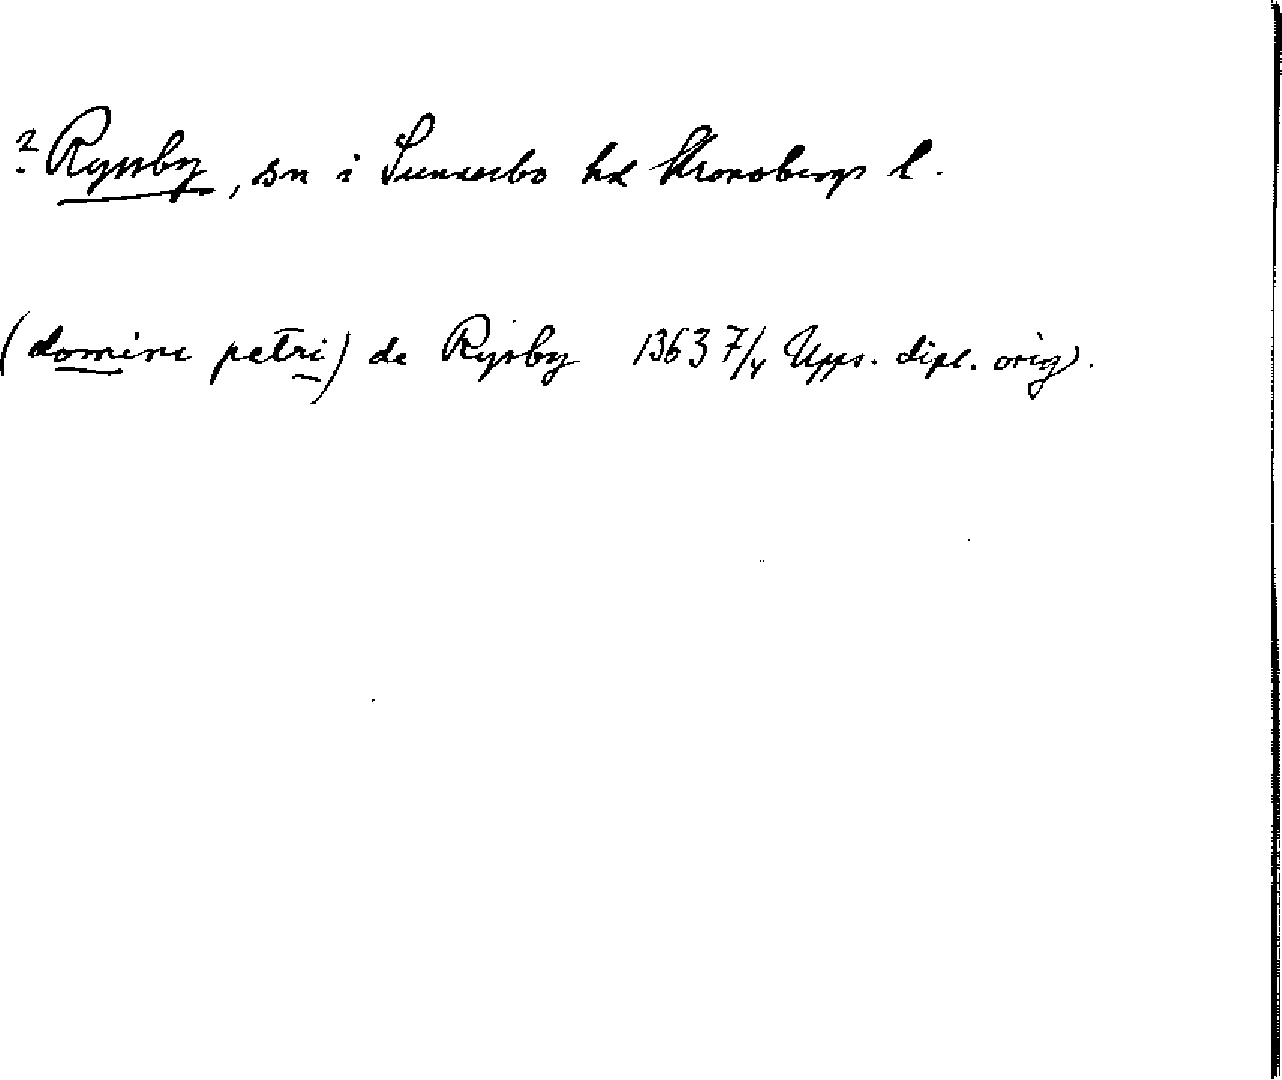 ? Ryssby, sn i Sunnerbo hd Kronobergs l.
(domini petri) de Rysby 1363 7/4 Upps. dipl. orig.